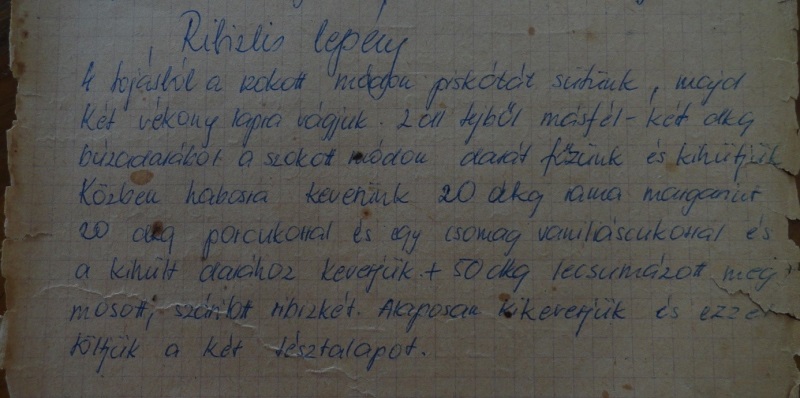 Ribizlis lepény
4 tojásból a szokott módon piskótát sütünk, majd
két vékony lapra vágjuk. 2 dl tejből másfél-két dkg
búzadarából a szokott módon darát főzünk és kihűtjük
Közben habosra keverünk 20 dkg rama margarint
20 dkg porcukorral és egy csomag vaníliáscukorral és
a kihűlt darához keverjük + 50 dkg lecsumázott, meg
mosott, szárított ribizkét. Alaposan kikeverjük és ezzel
töltjük a két tésztalapot.